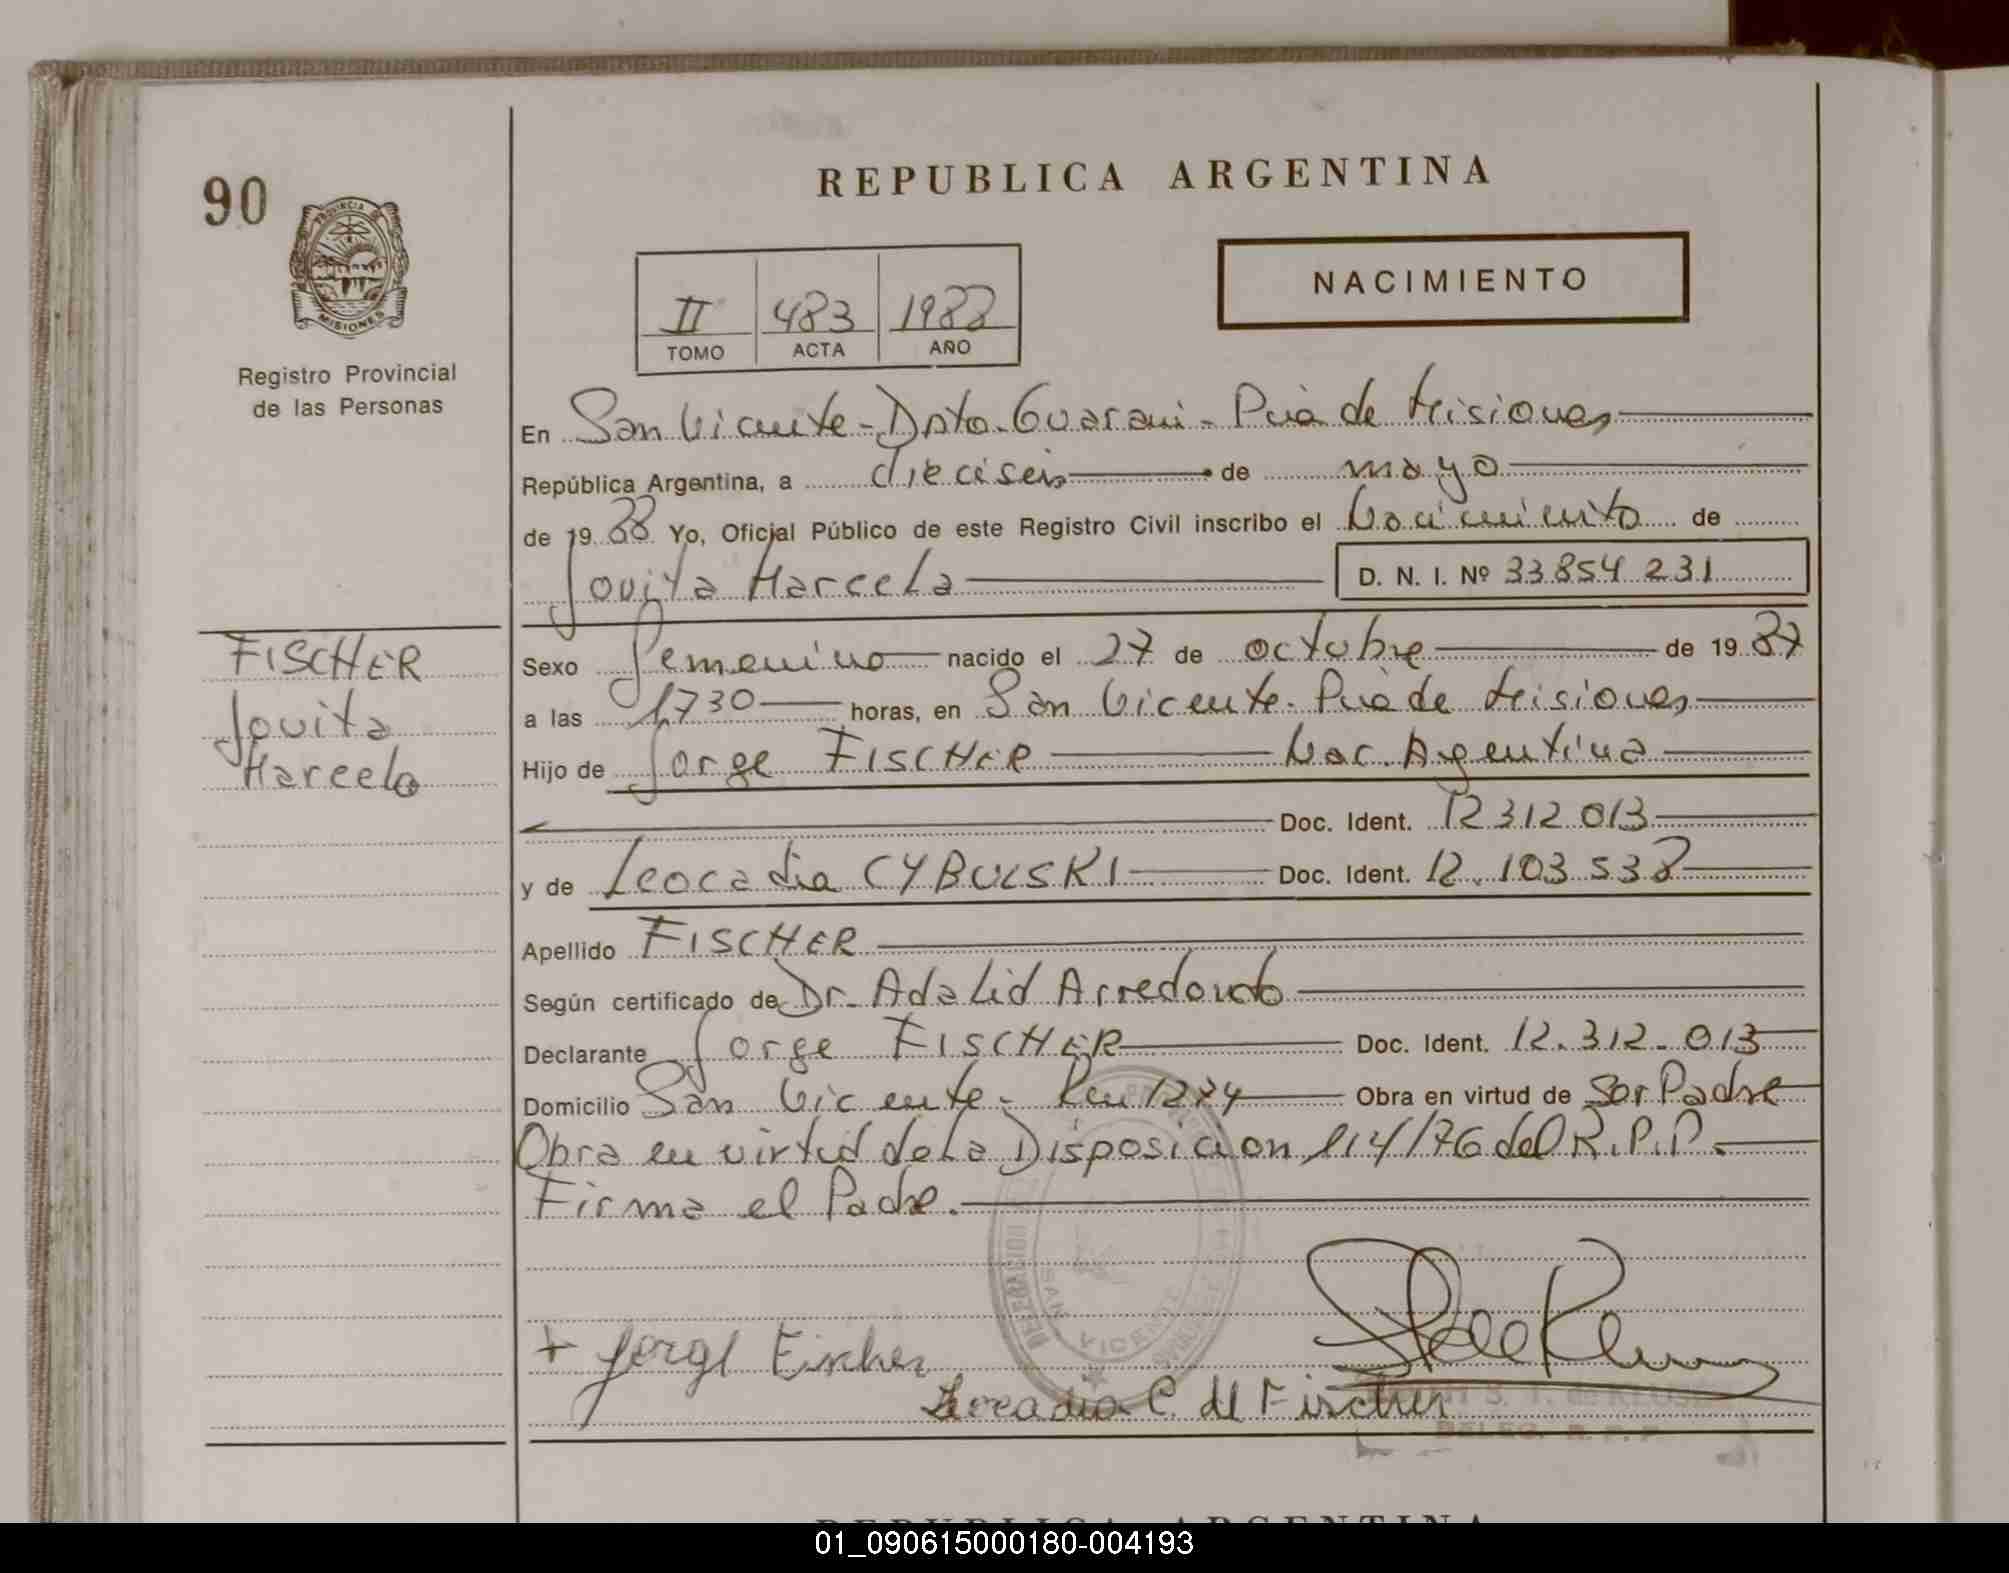 90
REPUBLICA ARGENTINA
PROVINCIA DE
MISIONES
Registro Provincial
de las Personas
II 483 1988
TOMO ACTA AÑO
NACIMIENTO
En San Vicente - Dpto. Guarani - Pcia de Misiones
República Argentina, a dieciseis de mayo
de 1988 Yo, Oficial Público de este Registro Civil inscribo el Nacimiento de
Jovita Marcela D. N. I. Nº 33854 231
FISCHER
Jovita
Marcela
Sexo Femenino nacido el 27 de octubre de 1987
a las 1730 horas, en San Vicente. Pcia de Misiones
Hijo de Jorge FISCHER Nac. Argentina
Doc. Ident. 12312 013
y de Leocadia CYBULSKI Doc. Ident. 12.103 538
Apellido FISCHER
Según certificado de Dr. Adalid Arredondo
Declarante Jorge FISCHER Doc. Ident. 12.312.013
Domicilio San Vicente - Obra en virtud de Ser Padre
Obra en virtud de la Disposicion 114/76 del R.P.P.
Firma el Padre.
DELEGACION
SAN VICENTE
+ Jorge Fischer
Leocadia C. de Fischer
DELEG. R. P. P.
REPUBLICA ARGENTINA
01_090615000180-004193